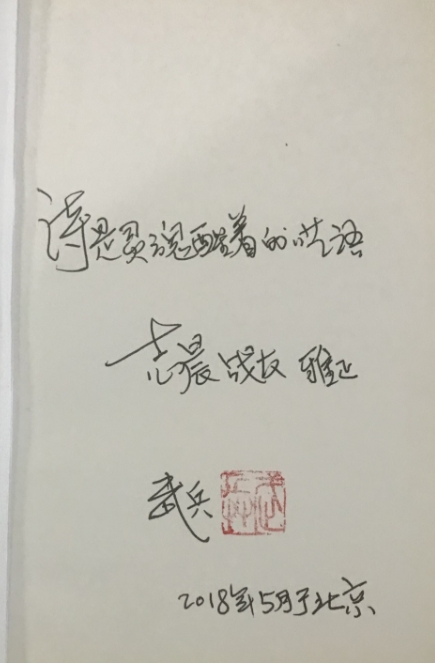 诗是灵魂醒着的呓语
志晨战友 雅正
武兵 武兵
2018年5月于北京